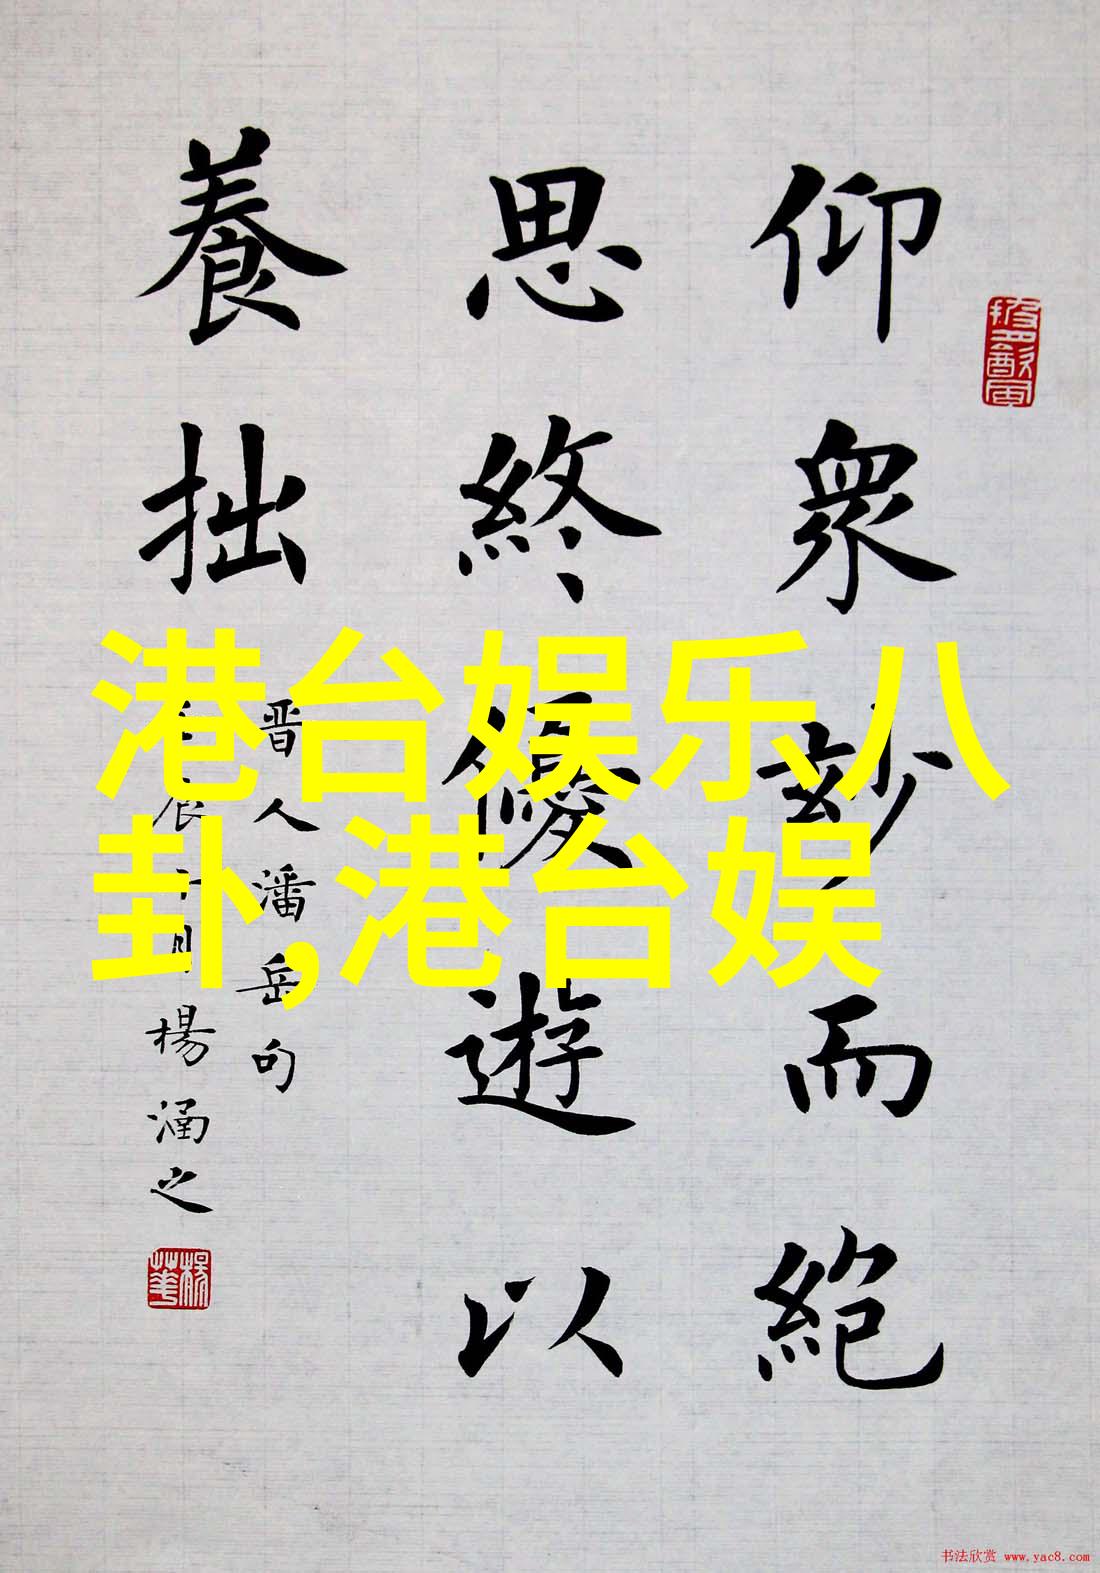 仰衆玅而絶
思終優遊以
養拙
晋人潘岳句
楊涵之
港台娱乐八
卦,港台娱
书法欣赏 www.yac8.com